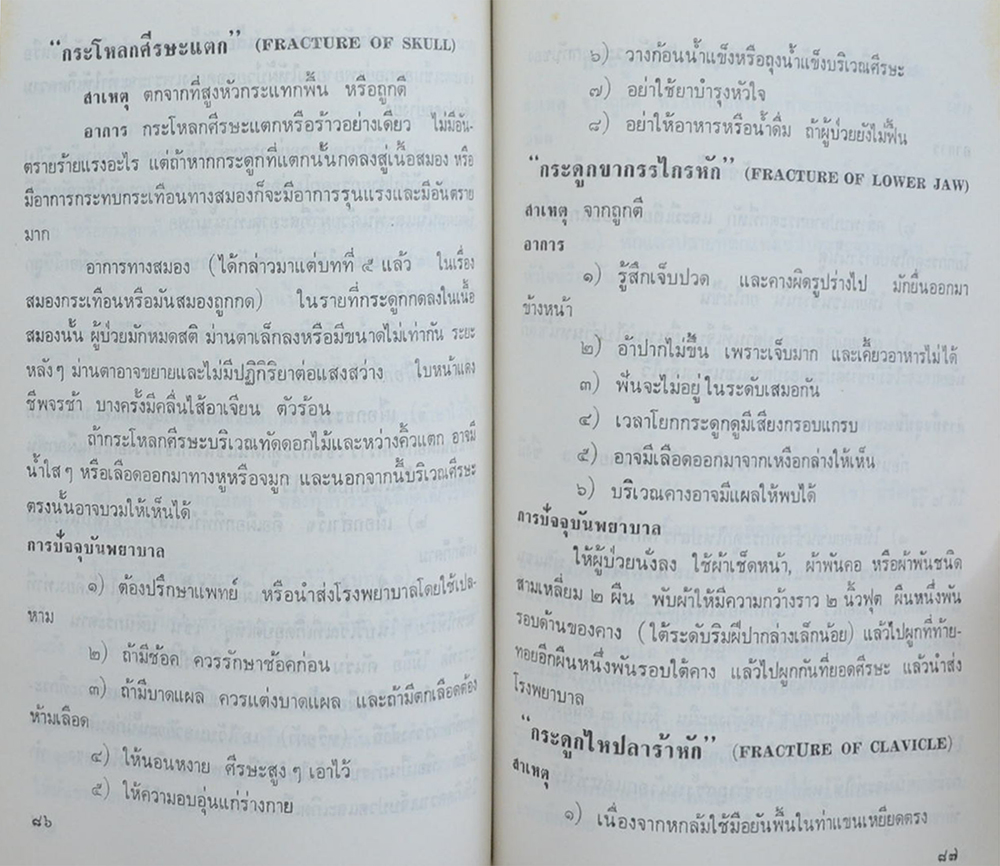 “กระโหลกศีรษะแตก” (FRACTURE OF SKULL)
สาเหตุ ตกจากที่สูงหัวกระแทกพื้น หรือถูกตี
อาการ กระโหลกศีรษะแตกหรือร้าวอย่างเดียว ไม่มีอัน-
ตรายร้ายแรงอะไร แต่ถ้าหากกระดูกที่แตกนั้นกดลงสู่เนื้อสมอง หรือ
มีอาการกระทบกระเทือนทางสมองก็จะมีอาการรุนแรงและมีอันตราย
มาก
อาการทางสมอง (ได้กล่าวมาแต่บทที่ ๕ แล้ว ในเรื่อง
สมองกระเทือนหรือมันสมองถูกกด) ในรายที่กระดูกกดลงในเนื้อ
สมองนั้น ผู้ป่วยมักหมดสติ ม่านตาเล็กลงหรือมีขนาดไม่เท่ากัน ระยะ
หลังๆ ม่านตาอาจขยายและไม่มีปฏิกิริยาต่อแสงสว่าง ใบหน้าแดง
ชีพจรช้า บางครั้งมีคลื่นไส้อาเจียน ตัวร้อน
ถ้ากระโหลกศีรษะบริเวณทัดดอกไม้และหว่างคิ้วแตก อาจมี
น้ำใสๆ หรือเลือดออกมาทางหูหรือจมูก และนอกจากนี้บริเวณศีรษะ
ตรงนั้นอาจบวมให้เห็นได้
การปัจจุบันพยาบาล
๑) ต้องปรึกษาแพทย์ หรือนำส่งโรงพยาบาลโดยใช้เปล-
หาม
๒) ถ้ามีช้อค ควรรักษาช้อคก่อน
๓) ถ้ามีบาดแผล ควรแต่งบาดแผล และถ้ามีตกเลือดต้อง
ห้ามเลือด
๔) ให้นอนหงาย ศีรษะสูง ๆ เอาไว้
๕) ให้ความอบอุ่นแก่ร่างกาย
๘๖
๖) วางก้อนน้ำแข็งหรือถุงน้ำแข็งบริเวณศีรษะ
๗) อย่าใช้ยาบำรุงหัวใจ
๘) อย่าให้อาหารหรือน้ำดื่ม ถ้าผู้ป่วยยังไม่ฟื้น
“กระดูกขากรรไกรหัก” (FRACTURE OF LOWER JAW)
สาเหตุ จากถูกตี
อาการ
๑) รู้สึกเจ็บปวด และคางผิดรูปร่างไป มักยื่นออกมา
ข้างหน้า
๒) อ้าปากไม่ขึ้น เพราะเจ็บมาก และเคี้ยวอาหารไม่ได้
๓) ฟันจะไม่อยู่ในระดับเสมอกัน
๔) เวลาโยกกระดูกดูมีเสียงกรอบแกรบ
๕) อาจมีเลือดออกมาจากเหงือกล่างให้เห็น
๖) บริเวณคางอาจมีแผลให้พบได้
การปัจจุบันพยาบาล
ให้ผู้ป่วยนั่งลง ใช้ผ้าเช็ดหน้า, ผ้าพันคอ หรือผ้าพันชนิด
สามเหลี่ยม ๒ ผืน พับผ้าให้มีความกว้างราว ๒ นิ้วฟุต ผืนหนึ่งพัน
รอบด้านของคาง (ใต้ระดับริมฝีปากล่างเล็กน้อย) แล้วไปผูกที่ท้าย-
ทอยอีกผืนหนึ่งพันรอบใต้คาง แล้วไปผูกกันที่ยอดศีรษะ แล้วนำส่ง
โรงพยาบาล
“กระดูกไหปลาร้าหัก” (FRACTURE OF CLAVICLE)
สาเหตุ
๑) เนื่องจากหกล้มใช้มือยันพื้นในท่าแขนเหยียดตรง
๘๗